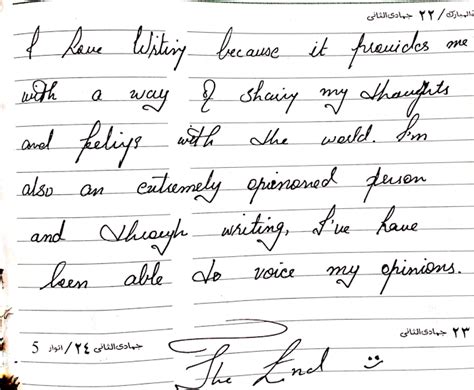 ٢٢ / جمادى الثانى
I love Writing because it provides me
with a way of sharing my thoughts
and feelings with the world. I'm
also an extremely opinioned person
and through writing, I've have
been able to voice my opinions.
٢٣ جمادى الثانى
5 اتوار / ٢٤ جمادى الثانى
The End